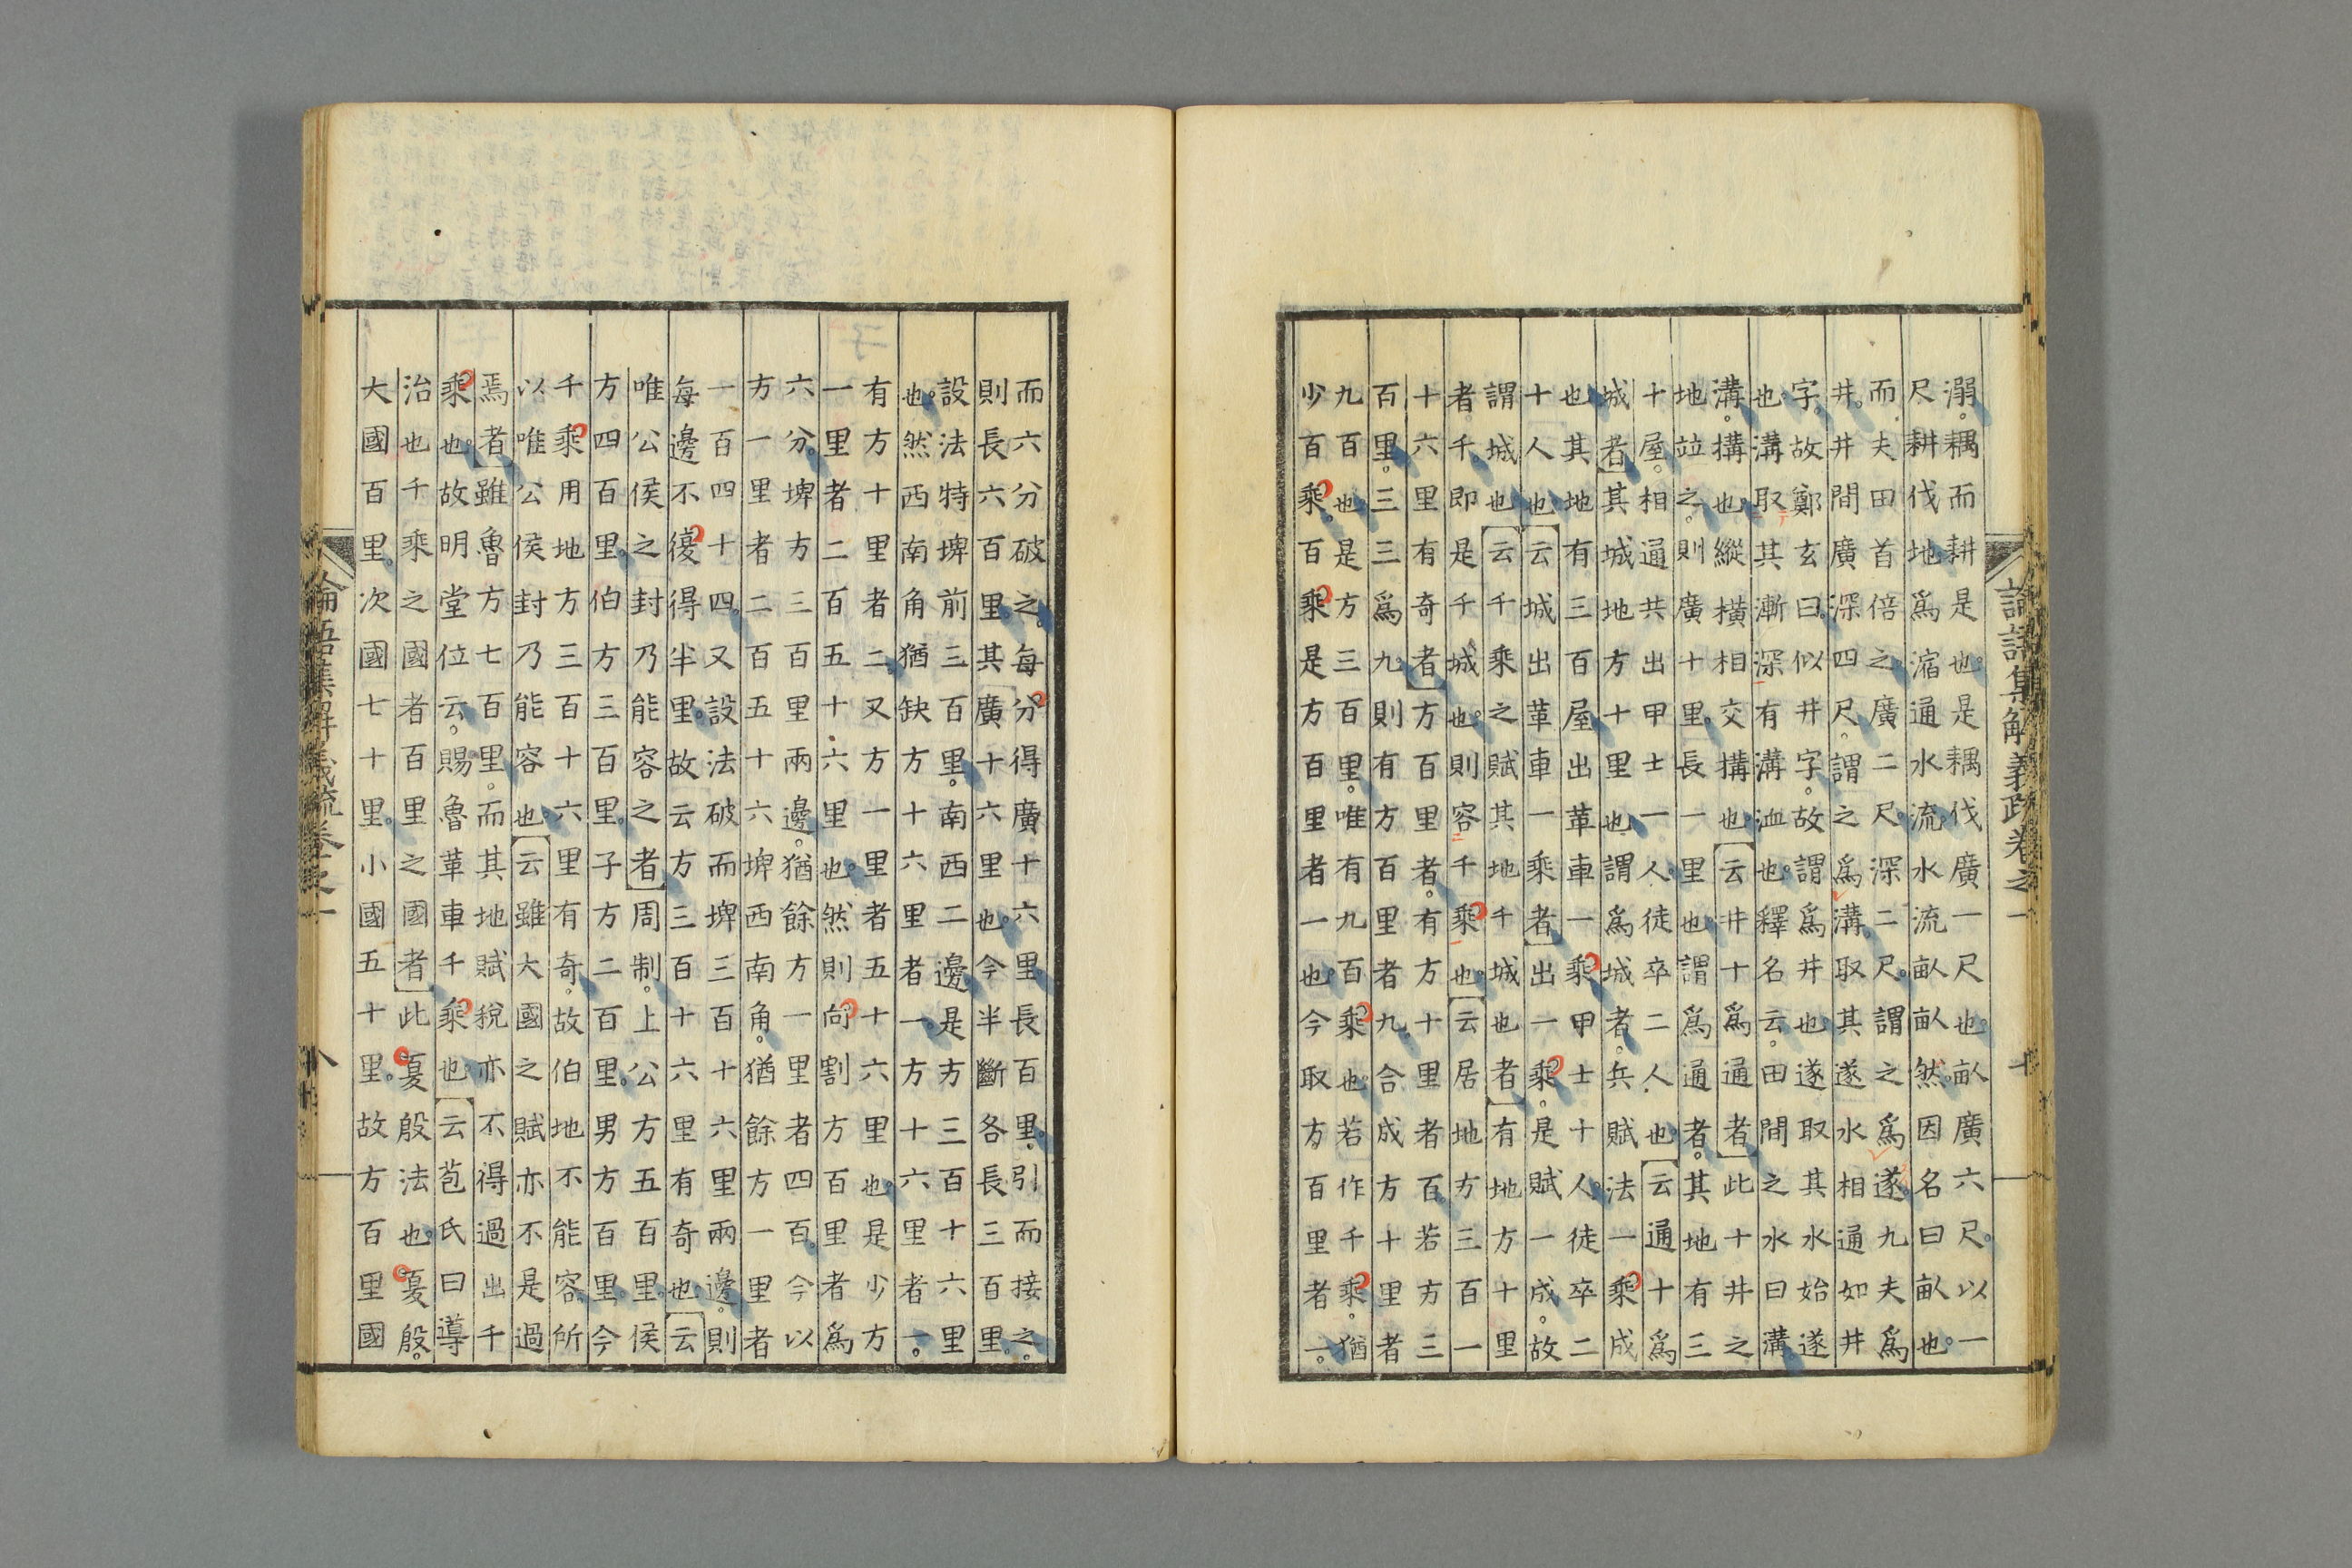 溺耦而耕是也是耦伐廣一尺也畆廣六尺以一
尺耕伐地爲通水流水流畆畆然因名曰畆也
而夫田首倍之廣二尺深二尺謂之爲遂九夫爲
井井間廣深四尺謂之爲溝取其遂水相通如井
字故鄭玄曰似井字故謂爲井也遂取其水始遂
也溝取其漸深有溝洫也釋名云田間之水曰溝
溝搆也縱橫相交搆也云井十爲通者此十井之
地竝之則廣十里長一里也謂爲通者其地有三
十屋相通共出甲士一人徒卒二人也云通十爲
城者其城地方十里也謂爲城者兵賦法一乘成
也其地有三百屋出革車一乘甲士十人徒卒二
十人也云城出革車一乘者出一乘是賦一成故
謂城也云千乘之賦其地千城也者有地方十里
者千即是千城也則容千乘也云居地方三百一
十六里有奇者方百里者有方十里者百若方三
百里三三爲九則有方百里者九合成方十里者
九百也是方三百里唯有九百乘也若作千乘猶
少百乘百乘是方百里者一也今取方百里者一
論語集解義疏卷之一
七
而六分破之每分得廣十六里長百里引而接之
則長六百里其廣十六里也今半斷各長三百里
設法特埤前三百里南西二邊是方三百十六里
也然西南角猶缺方十六里者一方十六里者一
有方十里者二又方一里者五十六里也是少方
一里者二百五十六里也然則向割方百里者爲
六分埤方三百里兩邊猶餘方一里者四百今以
方一里者二百五十六埤西南角猶餘方一里者
一百四十四又設法破而埤三百十六里兩邊則
每邊不復得半里故云方三百十六里有奇也云
唯公侯之封乃能容之者周制上公方五百里侯
方四百里伯方三百里子方二百里男方百里今
千乘用地方三百十六里有奇故伯地不能容所
以唯公侯封乃能容也云雖大國之賦亦不是過
焉者雖魯方七百里而其地賦稅亦不得過出千
乘也故明堂位云賜魯革車千乘也云苞氏曰導
治也千乘之國者百里之國者此夏殷法也夏殷
大國百里次國七十里小國五十里故方百里國
論語集解義疏卷之一
八